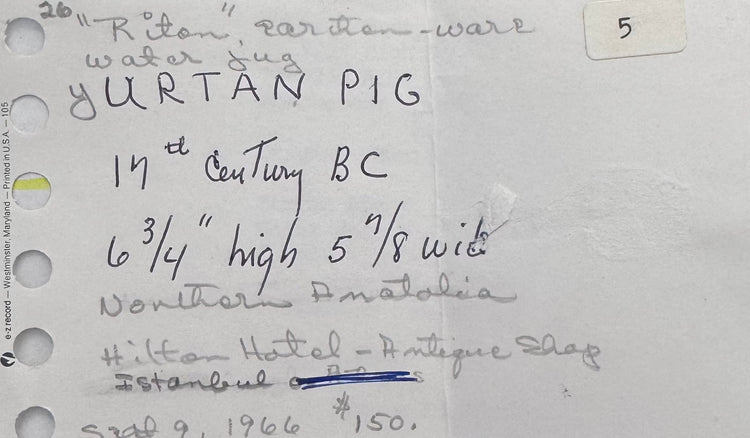 26 "Riton", earthen-ware
water jug
5
YURTAN PIG
17th Century BC
6 3/4" high 5 7/8 wide
Northern Anatolia
Hilton Hotel - Antique Shop
Istanbul
Sept 9, 1966 $150.
e-z record — Westminster, Maryland — Printed in U.S.A. — 105